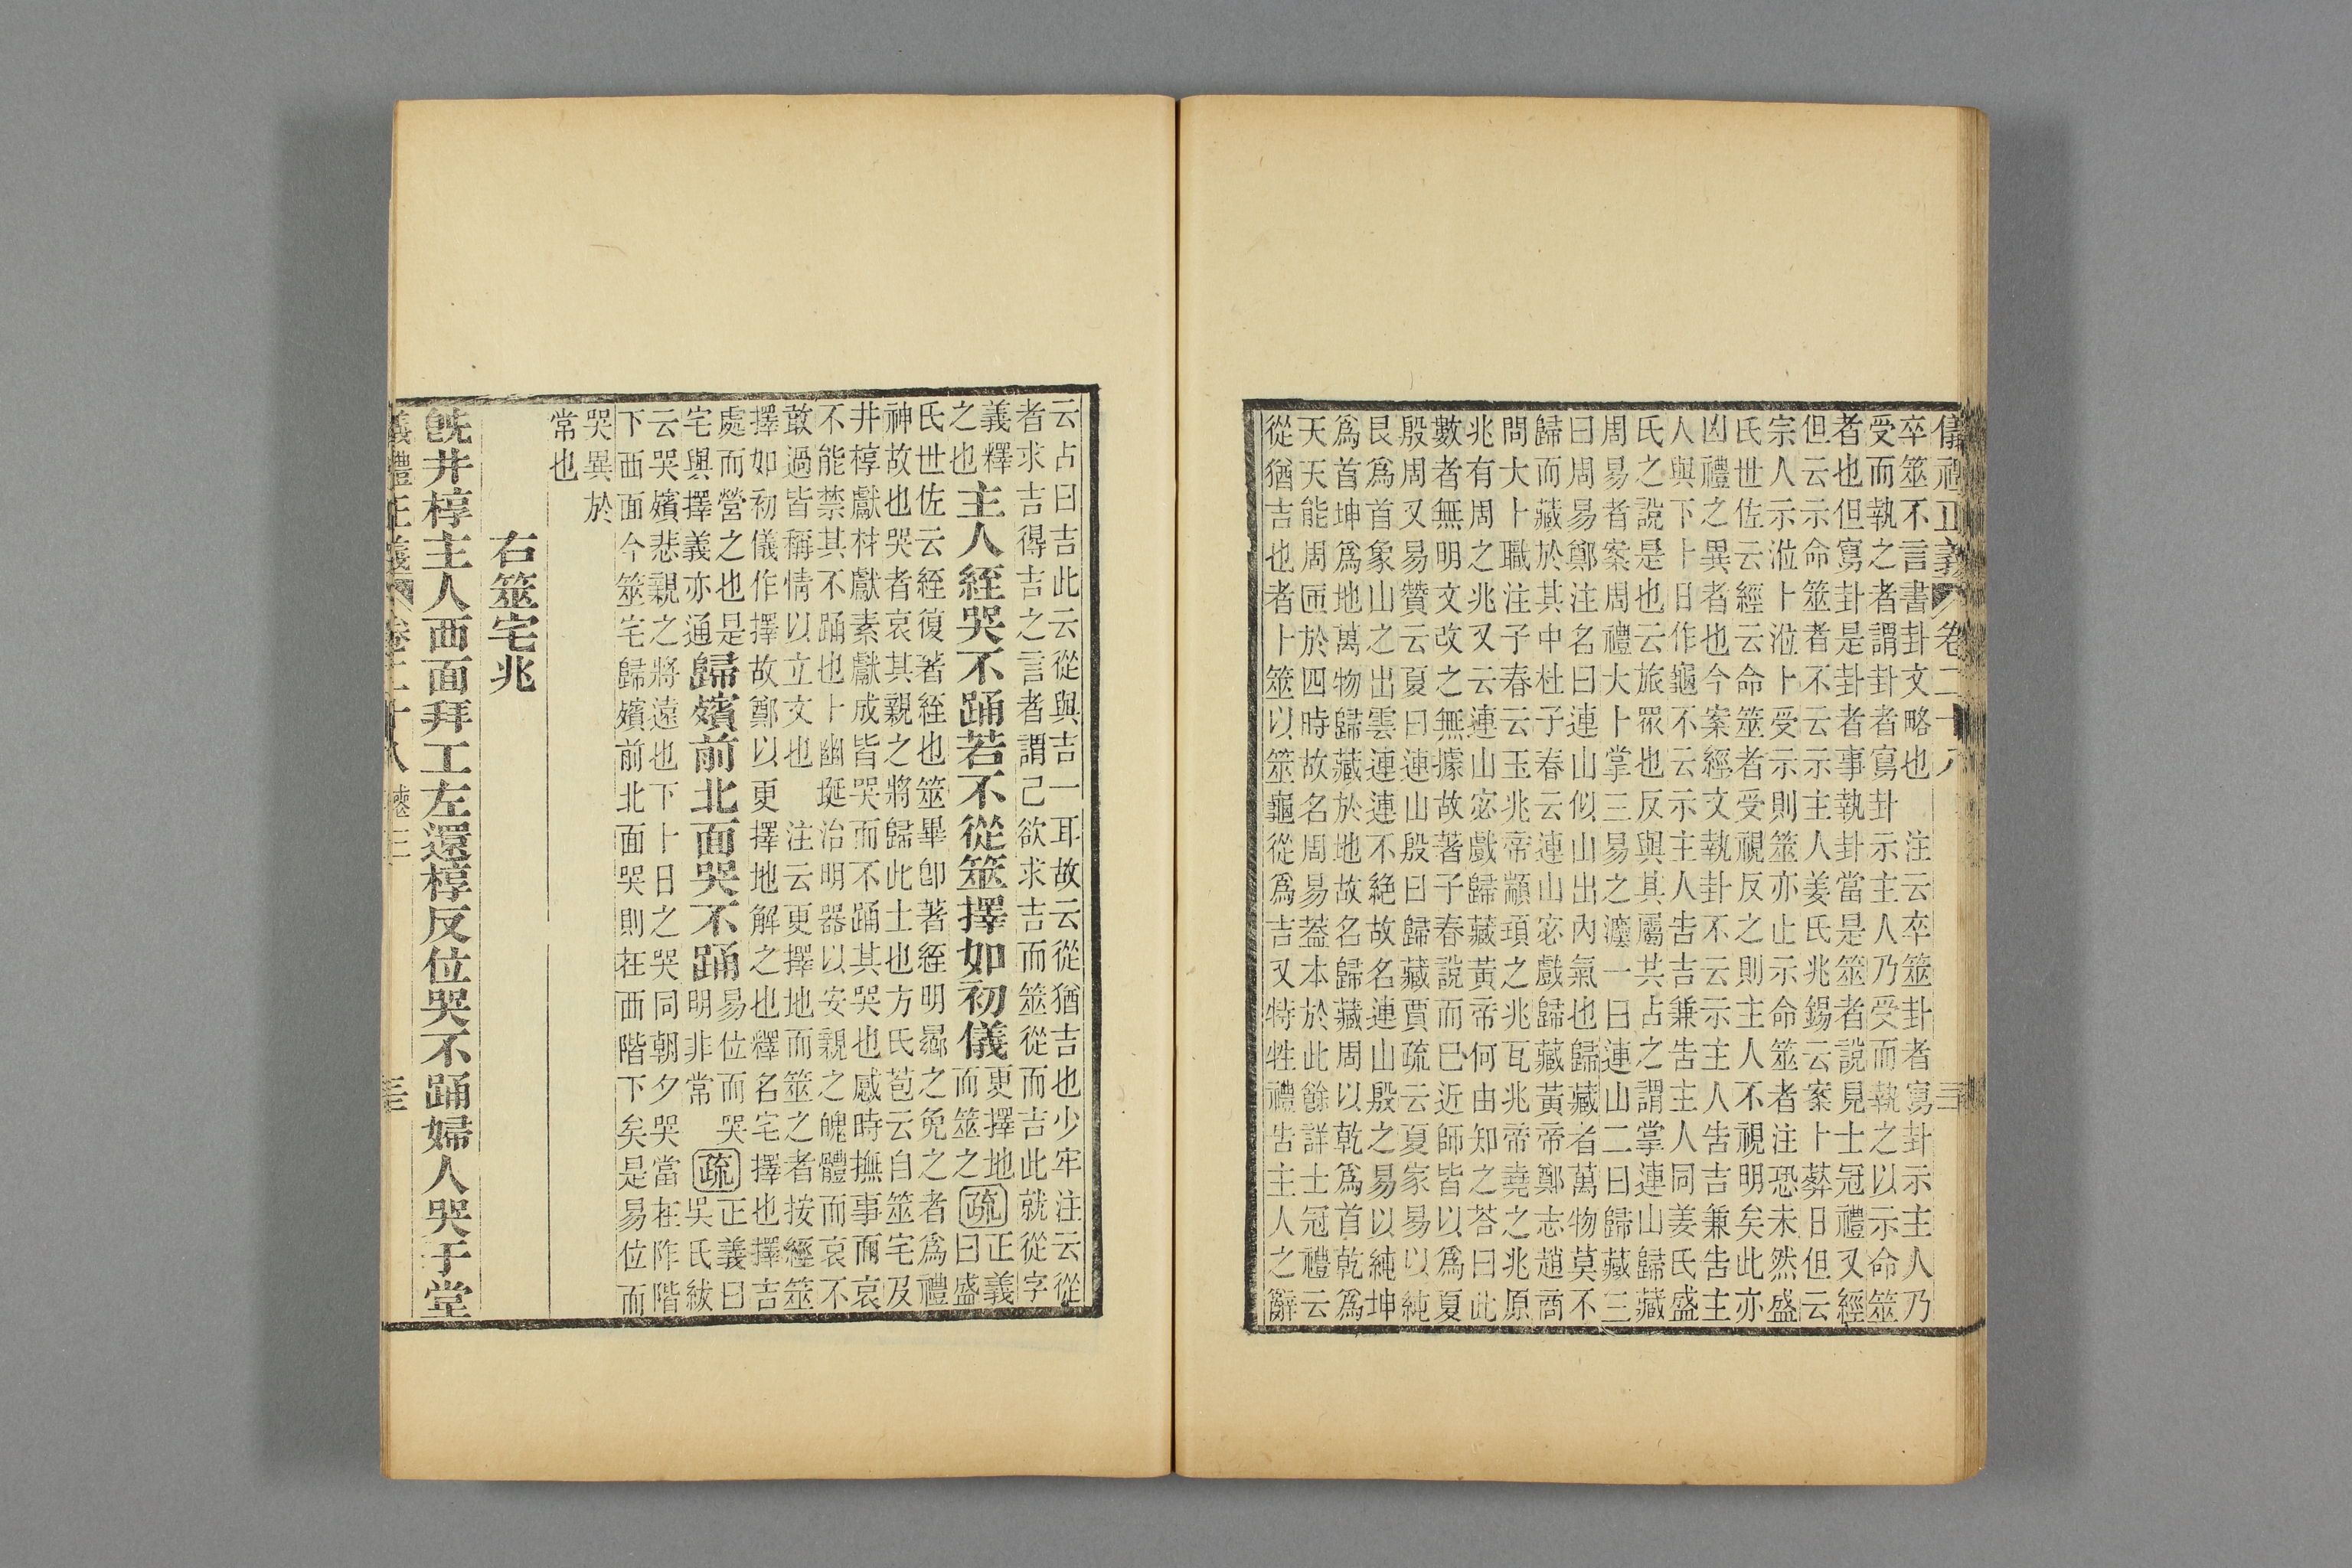 儀禮正義 卷二十八
卒筮不言書卦文略也 注云卒筮卦者寫卦示主人乃
受而執之者謂卦者寫卦示主人乃受而執之以示命筮
者也但寫卦是卦者事執卦當是筮者說見士冠禮又經
但云示命筮者不云示主人姜氏兆錫云案卜葬日但云
宗人示涖卜涖卜受示則筮亦止示命筮者注恐未然盛
氏世佐云經云命筮者受視反之則主人不視明矣此亦
凶禮之異者也今案經文執卦不云示主人告吉兼告主
人與下卜日作龜不云示主人告吉兼告主人同姜氏盛
氏之說是也云旅眾也反與其屬共占之謂掌連山歸藏
周易者案周禮大卜掌三易之灋一曰連山二曰歸藏三
曰周易鄭注名曰連山似山出內氣也歸藏者萬物莫不
歸而藏於其中杜子春云連山宓戲歸藏黃帝鄭志趙商
問大卜職注子春云玉兆帝顓頊之兆瓦兆帝堯之兆原
兆有周之兆又云連山宓戲歸藏黃帝何由知之荅曰此
數者無明文改之無據故著子春說而已近師皆以爲夏
殷周又易贊云夏曰連山殷曰歸藏賈疏云夏家易以純
艮爲首象山之出雲連連不絕故名連山殷之易以純坤
爲首坤爲地萬物歸藏於地故名歸藏周以乾爲首乾爲
天天能周匝於四時故名周易葢本於此餘詳士冠禮云
從猶吉也者卜筮以筮龜從爲吉又特牲禮告主人之辭
云占曰吉此云從與吉一耳故云從猶吉也少牢注云從
者求吉得吉之言者謂己欲求吉而筮從而吉此就從字
義釋之也主人絰哭不踊若不從筮擇如初儀更擇地而筮之疏正義曰盛
氏世佐云絰復著絰也筮畢卽著絰明曏之免之者爲禮
神故也哭者哀其親之將歸此土也方氏苞云自筮宅及
井椁獻材獻素獻成皆哭而不踊其哭也感時撫事而哀
不能禁其不踊也卜幽埏治明器以安親之魄體而哀不
敢過皆稱情以立文也 注云更擇地而筮之者按經筮
擇如初儀作擇故鄭以更擇地解之也釋名宅擇也擇吉
處而營之也是宅與擇義亦通歸殯前北面哭不踊易位而哭明非常疏正義曰吳氏紱
云哭殯悲親之將遠也下卜日之哭同朝夕哭當在阼階
下西面今筮宅歸殯前北面哭則在西階下矣是易位而
哭異於常也
右筮宅兆
旣井椁主人西面拜工左還椁反位哭不踊婦人哭于堂